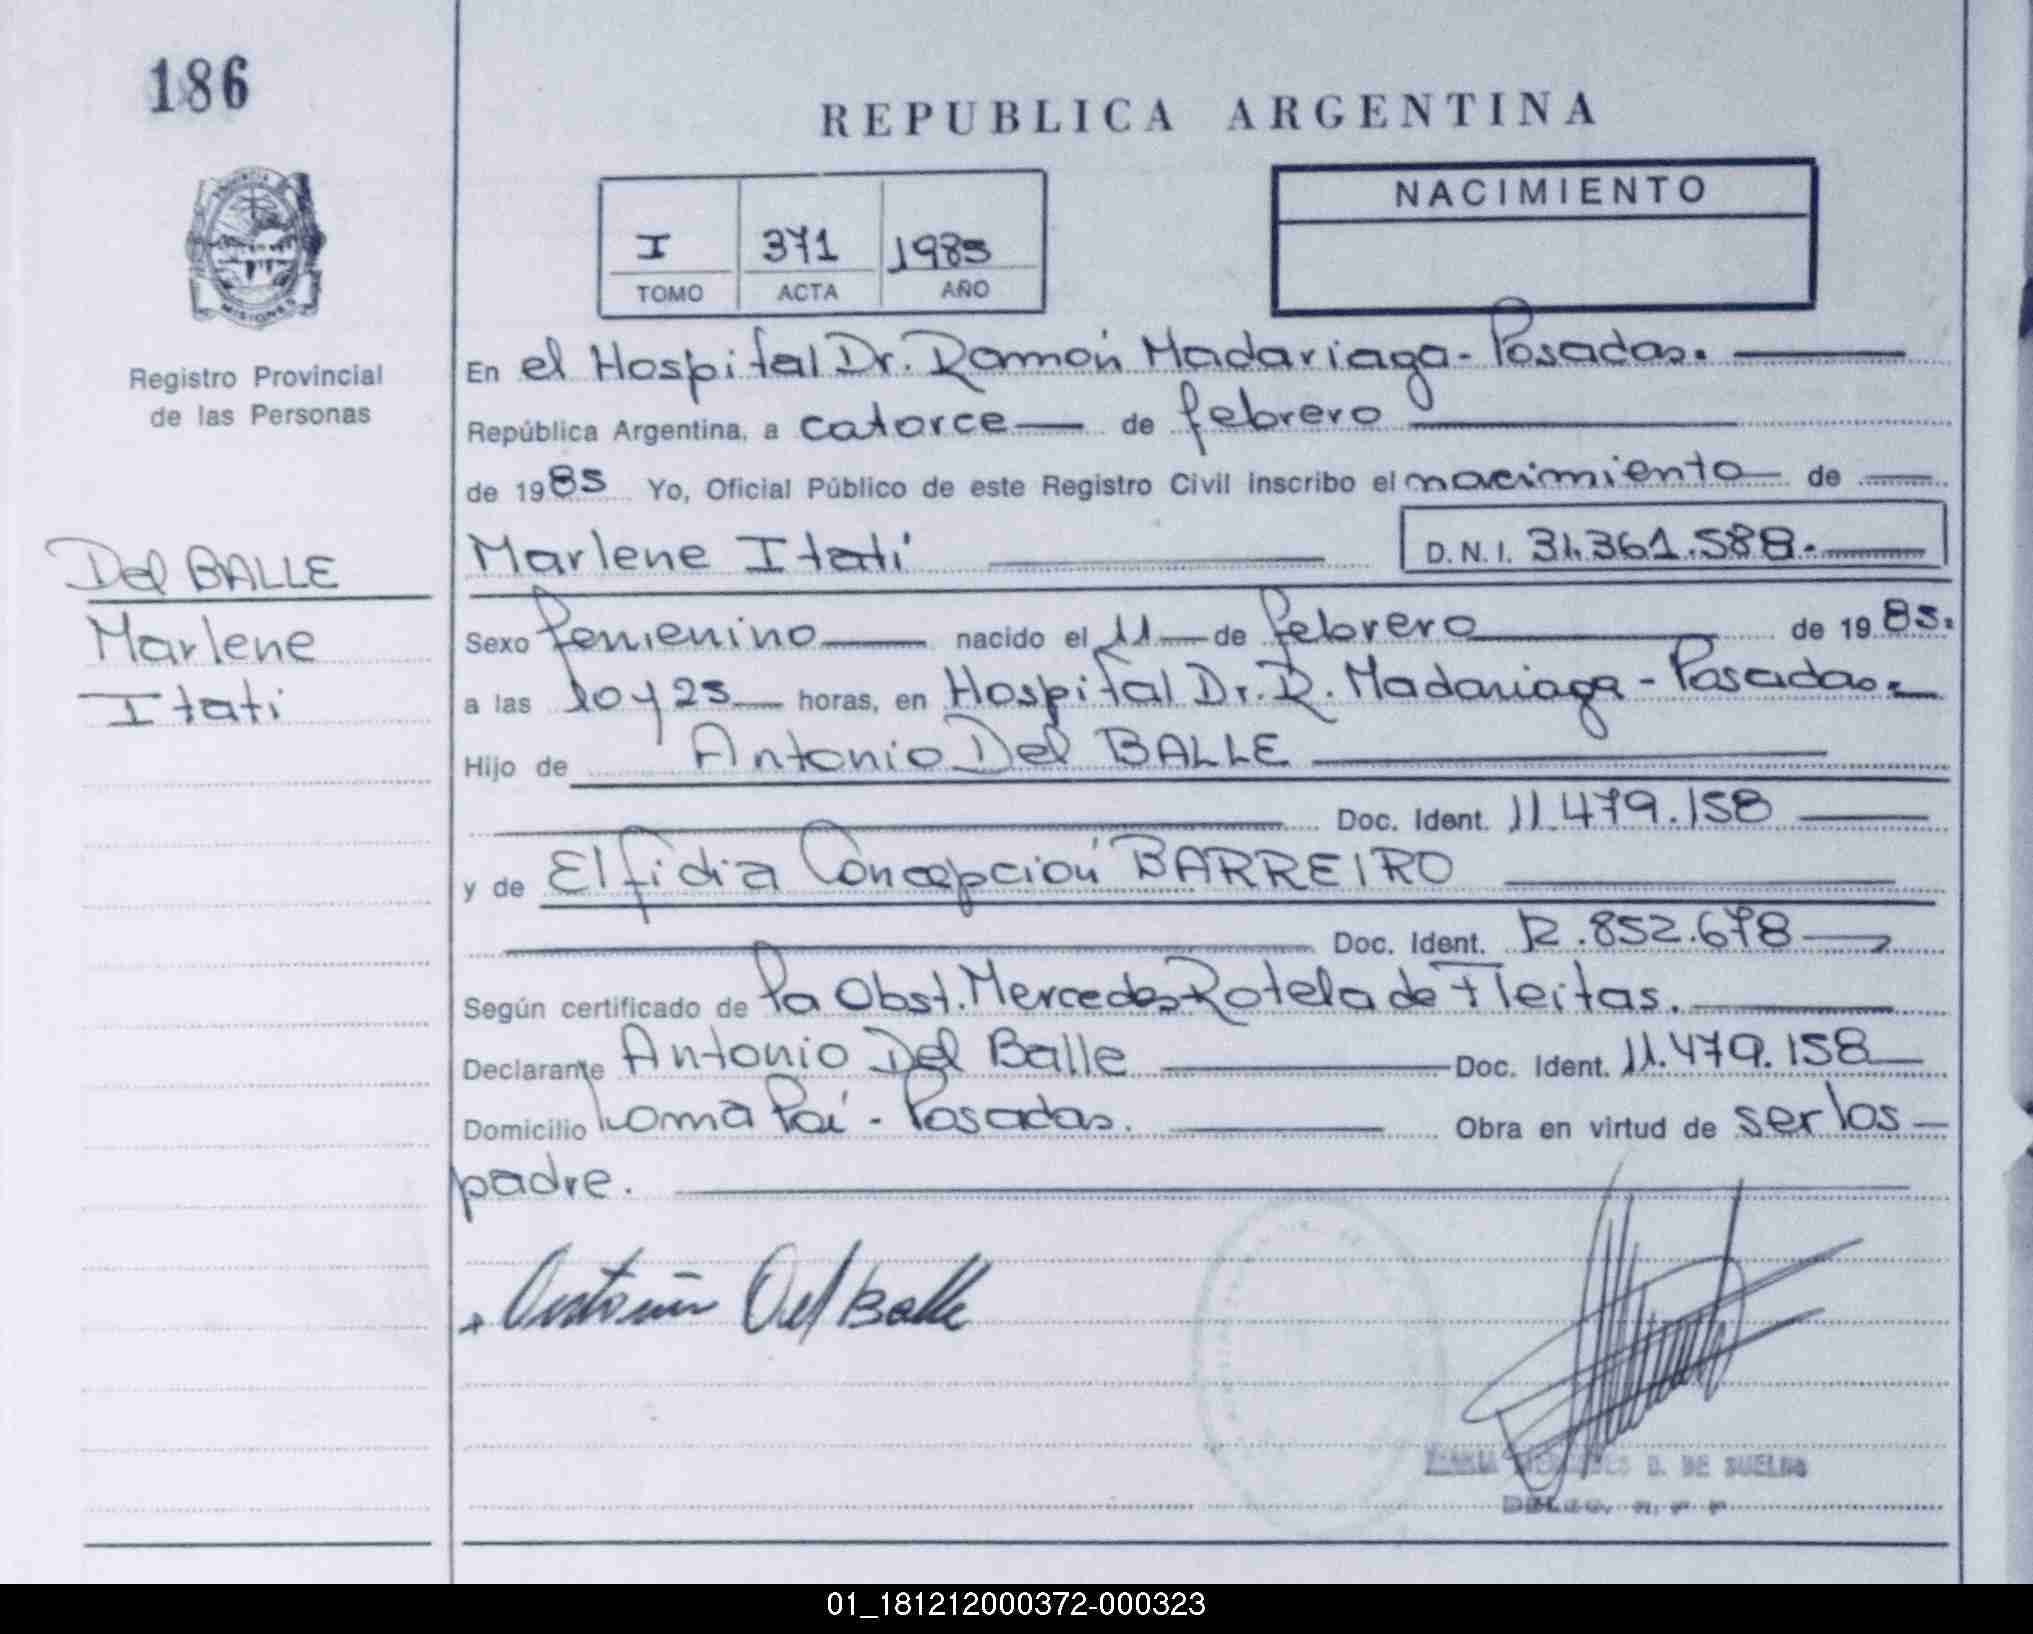 186
REPUBLICA ARGENTINA
PROVINCIA DE
MISIONES
Registro Provincial
de las Personas
I 371 1985
TOMO ACTA AÑO
NACIMIENTO
En el Hospital Dr. Ramón Madariaga - Posadas.
República Argentina, a catorce de febrero
de 1985 Yo, Oficial Público de este Registro Civil inscribo el nacimiento de
Del BALLE
Marlene
Itati
Marlene Itatí D.N.I. 31.361.588.
Sexo femenino nacido el 11 de febrero de 1985.
a las 10 y 25 horas, en Hospital Dr. R. Madariaga - Posadas.
Hijo de Antonio Del BALLE
Doc. Ident. 11.479.158
y de Elfidia Concepción BARREIRO
Doc. Ident. 12.852.678
Según certificado de la Obst. Mercedes Rotela de Fleitas.
Declarante Antonio Del Balle Doc. Ident. 11.479.158
Domicilio Loma Poí - Posadas. Obra en virtud de ser los
padre.
Antonio Del Balle
DE SUELDO
01_181212000372-000323